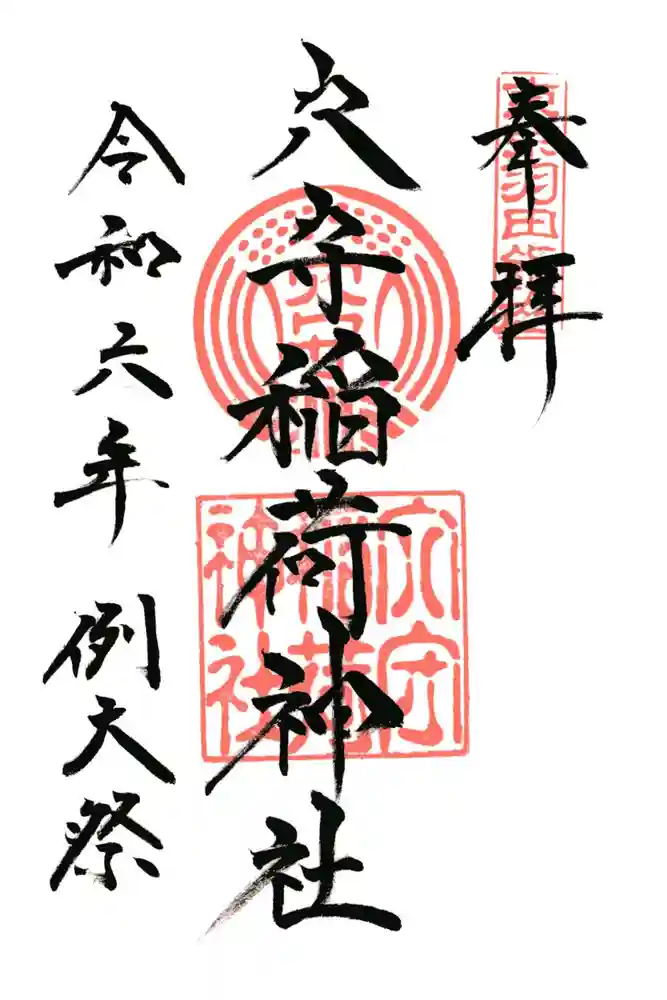 奉拝
穴守稲荷神社
令和六年 例大祭
穴守
稲荷
神社